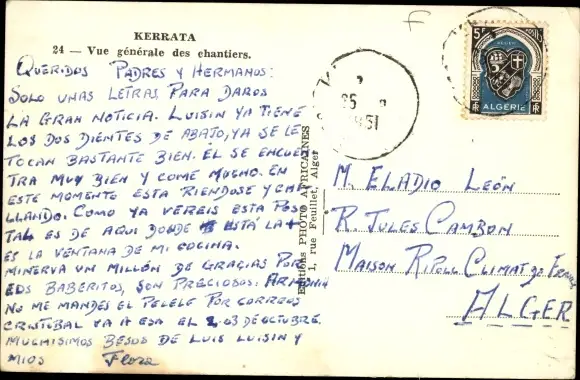 KERRATA
24 – Vue générale des chantiers.
QUERIDOS PADRES Y HERMANOS:
SOLO UNAS LETRAS PARA DAROS
LA GRAN NOTICIA. LUISIN YA TIENE
LOS DOS DIENTES DE ABAJO, YA SE LE
TOCAN BASTANTE BIEN. ÉL SE ENCUEN
TRA MUY BIEN Y COME MUCHO. EN
ESTE MOMENTO ESTA RIENDOSE Y CHI
LLANDO. COMO YA VEREIS ESTA POS
TAL ES DE AQUI DONDE ESTÁ LA
ES LA VENTANA DE MI COCINA.
MINERVA UN MILLÓN DE GRACIAS POR
BABERITOS, SON PRECIOSOS. ARMONIA
NO ME MANDES EL PELELE POR CORREOS
CRISTOBAL VA A ESA EL 2 Ó 3 DE OCTUBRE.
MUCHISIMOS BESOS DE LUIS LUISIN Y
MIOS Flora
Editions PHOTO AFRICAINES
1, rue Feuillet, Alger
5F
ALGÉRIE
RF RF
25
9
51
M. ELADIO LEÓN
R. JULES CAMBON
MAISON RIPOLL CLIMAT DE FRANCE
ALGER